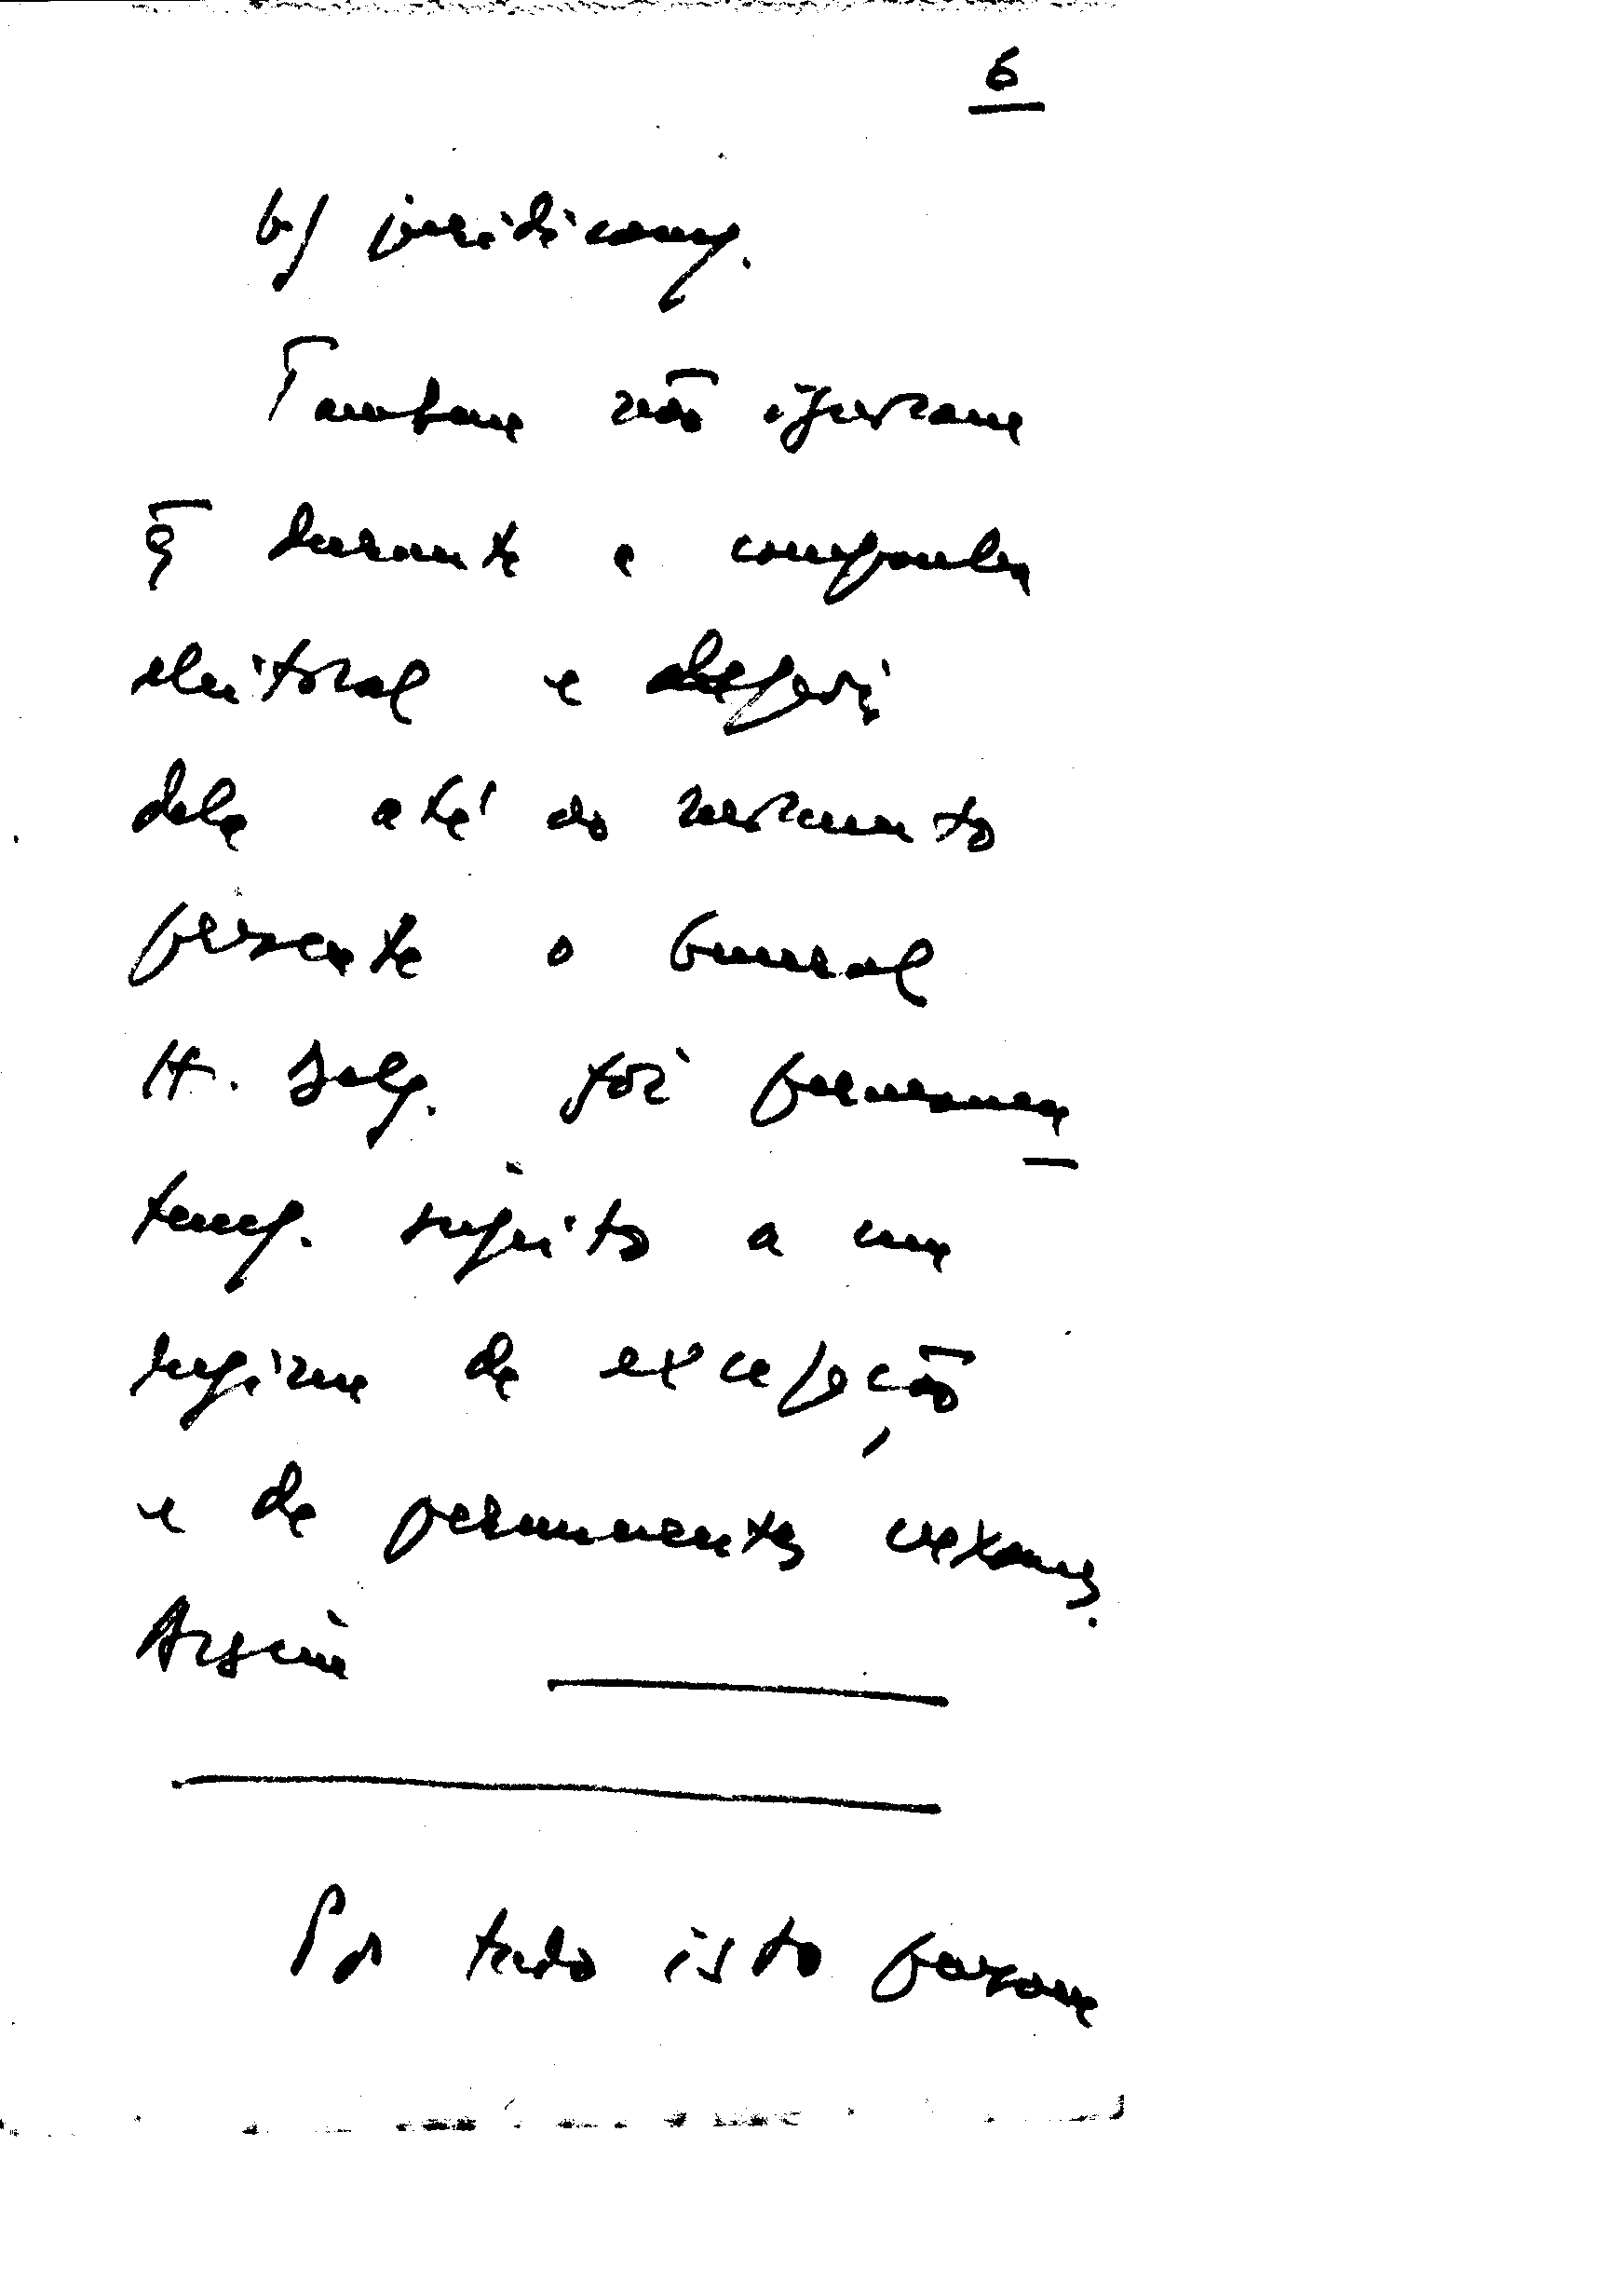 6
b) juridicamᵗᵉ.
Tambem não ignoram
q̄ durante a campanha
eleitoral e depois
dela até ao momento
presente o General
H. Delg. foi permanen
temᵗᵉ. sujeito a um
regime de excepção
e de permanentes vexames.
Assim
Por tudo isto foram